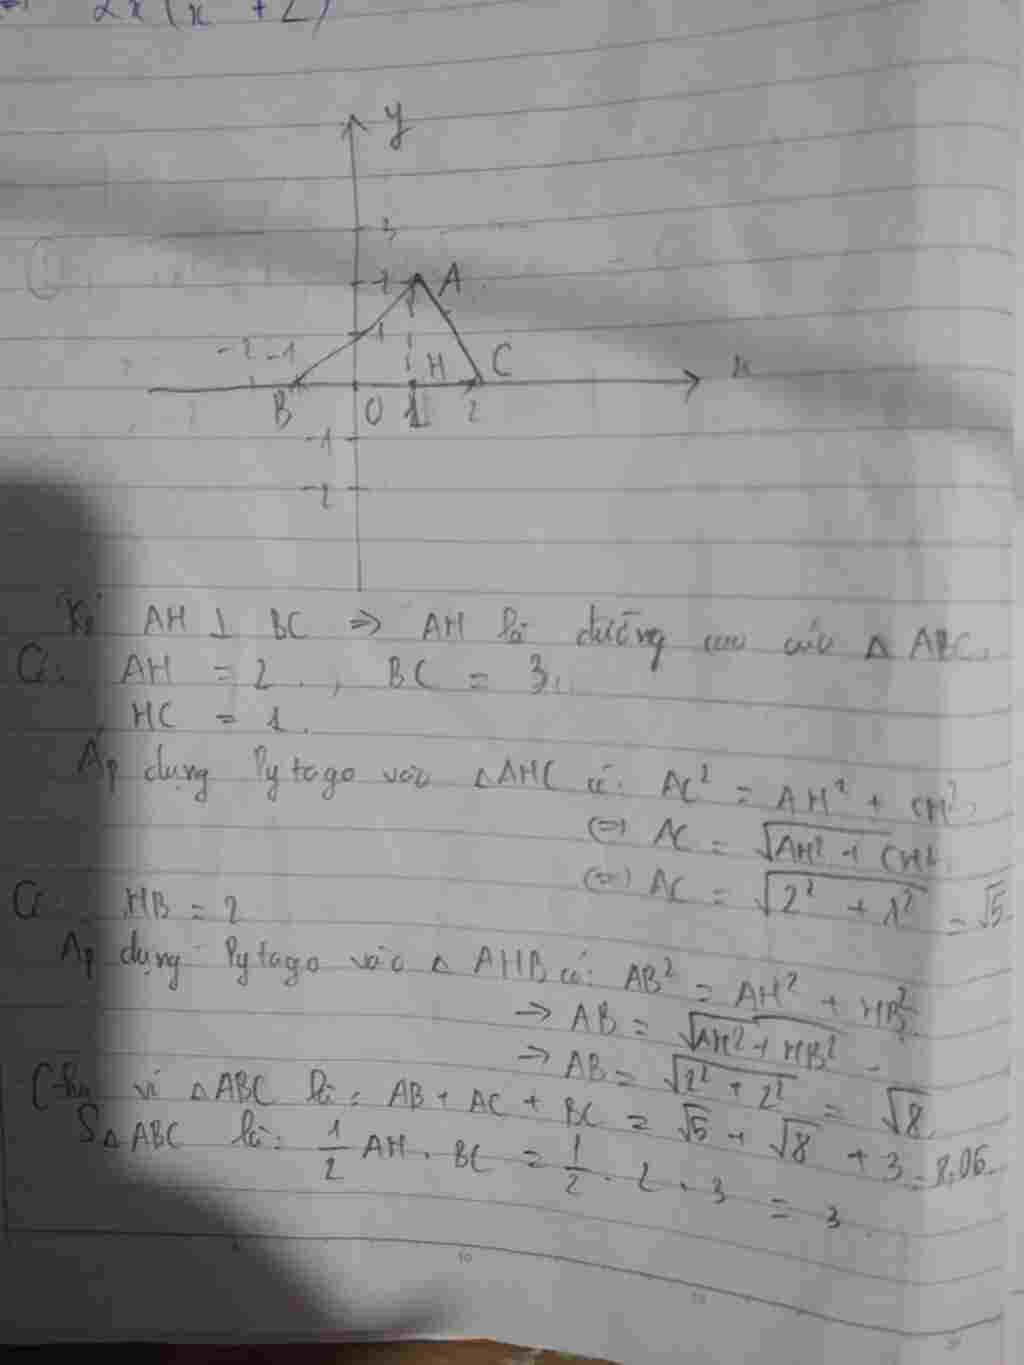 2x(x + 2)
y
3
A
1
-2 -1
H
C
x
B
O
1
2
-1
-2
Kẻ AH ⊥ BC => AH là đường cao của △ ABC.
Có: AH = 2 , BC = 3.
HC = 1.
Áp dụng Pytago vào △AHC có: AC² = AH² + CH²
<=> AC = √(AH² + CH²)
<=> AC = √(2² + 1²) = √5.
Có: HB = 2
Áp dụng Pytago vào △ AHB có: AB² = AH² + HB²
-> AB = √(AH² + HB²)
-> AB = √(2² + 2²) = √8
Chu vi △ABC là: AB + AC + BC = √5 + √8 + 3 = 8,06.
S△ABC là: 1/2 AH . BC = 1/2 . 2 . 3 = 3